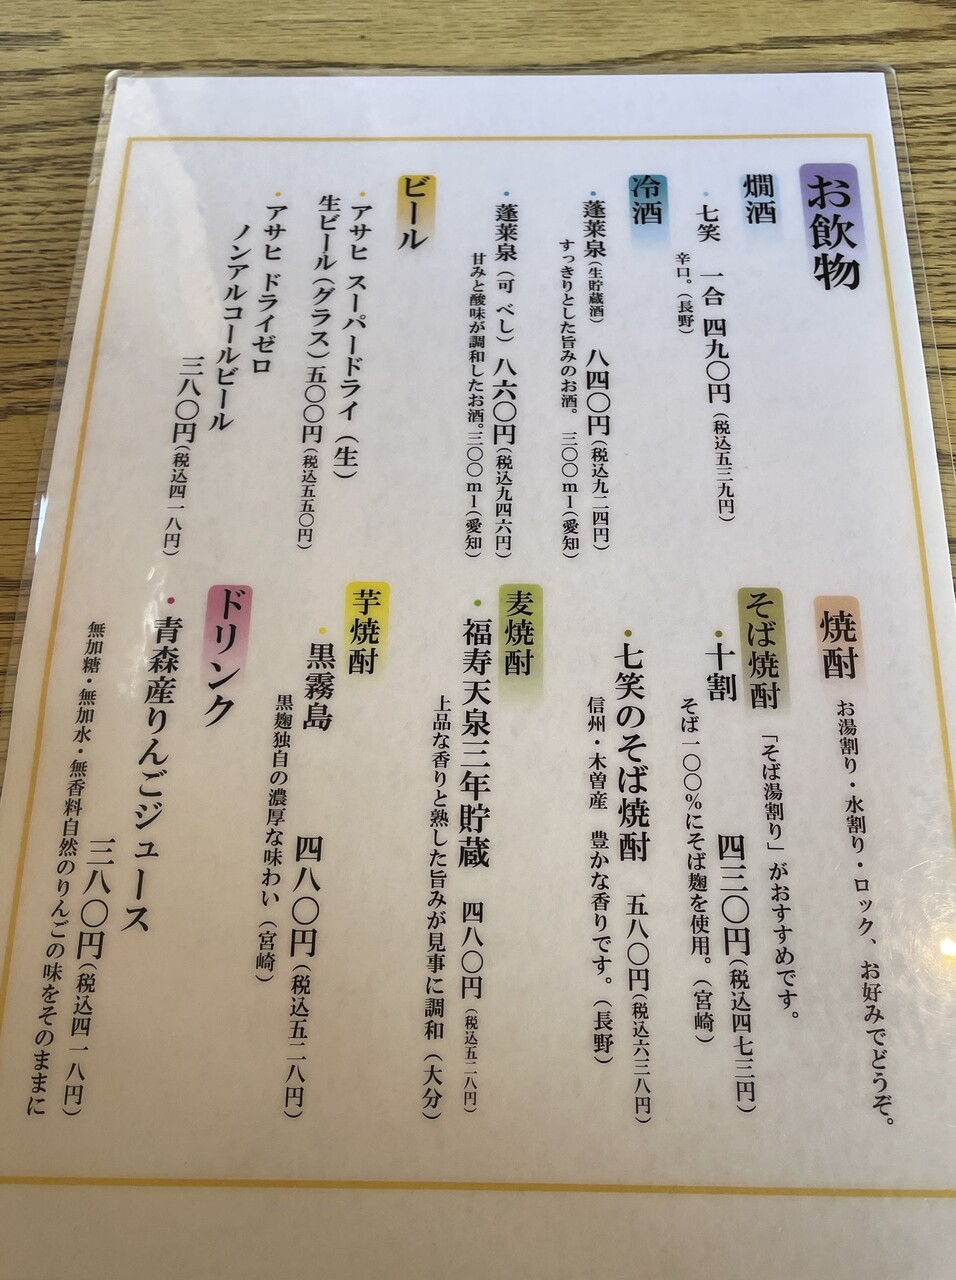 お飲物
燗酒
・七笑　一合 四九〇円（税込五三九円）
辛口。（長野）
冷酒
・蓬莱泉（生貯蔵酒）　八四〇円（税込九二四円）
すっきりとした旨みのお酒。　三〇〇ml（愛知）
・蓬莱泉（可 べし）八六〇円（税込九四六円）
甘みと酸味が調和したお酒。三〇〇ml（愛知）
ビール
・アサヒ スーパードライ（生）
生ビール（グラス）五〇〇円（税込五五〇円）
・アサヒ ドライゼロ
ノンアルコールビール
三八〇円（税込四一八円）
焼酎　お湯割り・水割り・ロック、お好みでどうぞ。
そば焼酎　「そば湯割り」がおすすめです。
・十割　四三〇円（税込四七三円）
そば一〇〇%にそば麹を使用。（宮崎）
・七笑のそば焼酎　五八〇円（税込六三八円）
信州・木曽産　豊かな香りです。（長野）
麦焼酎
・福寿天泉三年貯蔵　四八〇円（税込五二八円）
上品な香りと熟した旨みが見事に調和（大分）
芋焼酎
・黒霧島　四八〇円（税込五二八円）
黒麹独自の濃厚な味わい（宮崎）
ドリンク
・青森産りんごジュース
三八〇円（税込四一八円）
無加糖・無加水・無香料自然のりんごの味をそのままに